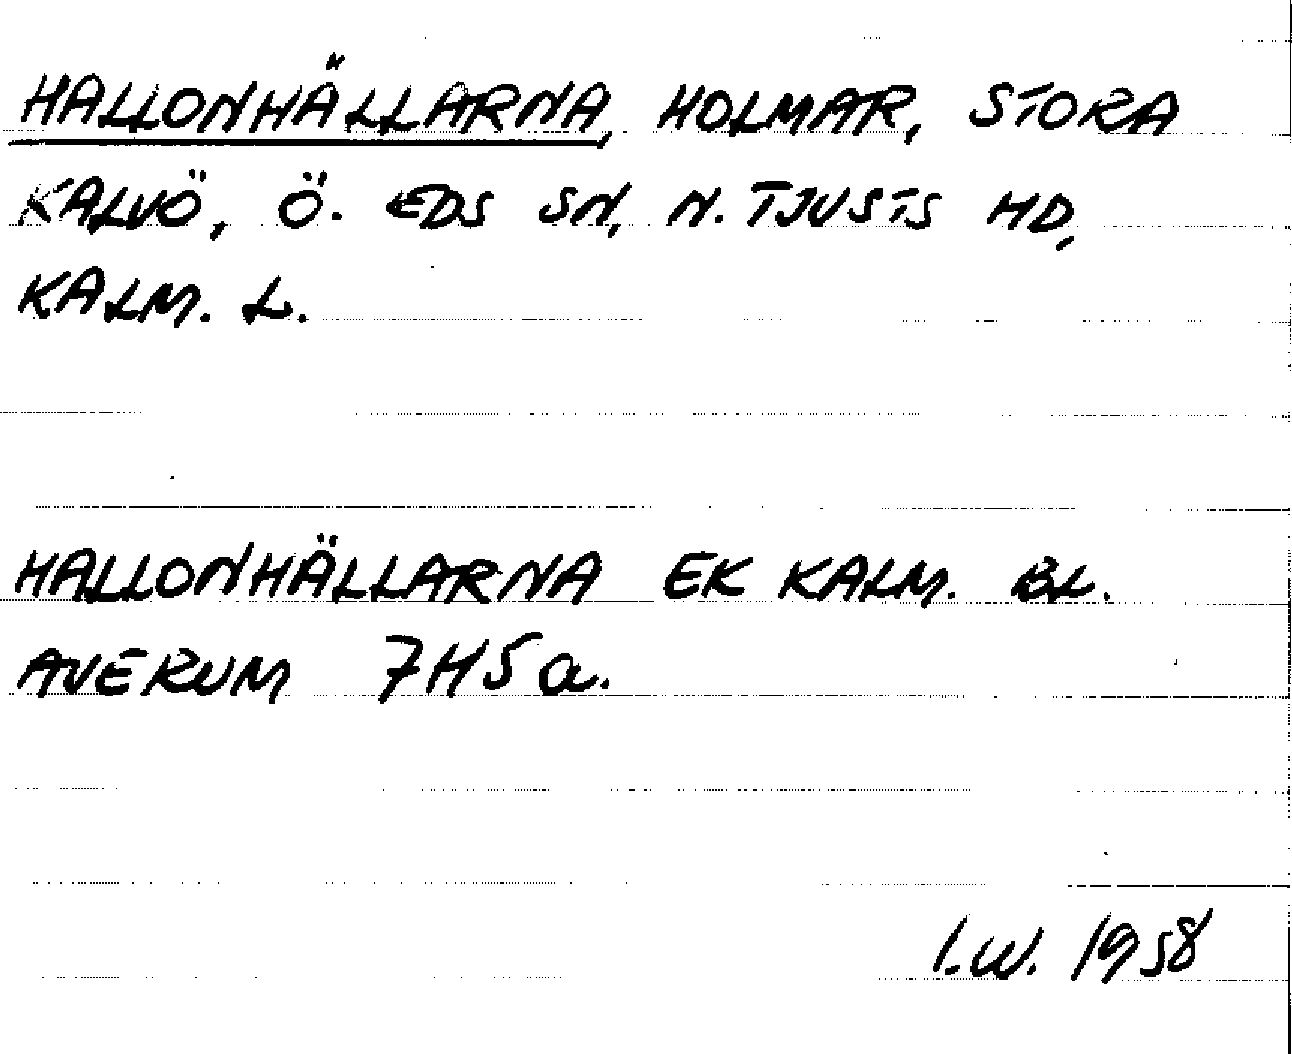 HALLONHÄLLARNA, HOLMAR, STORA
KALVÖ, Ö. EDS SN, N. TJUSTS HD,
KALM. L.
HALLONHÄLLARNA EK KALM. BL.
AVERUM 7H5a.
I.W. 1958